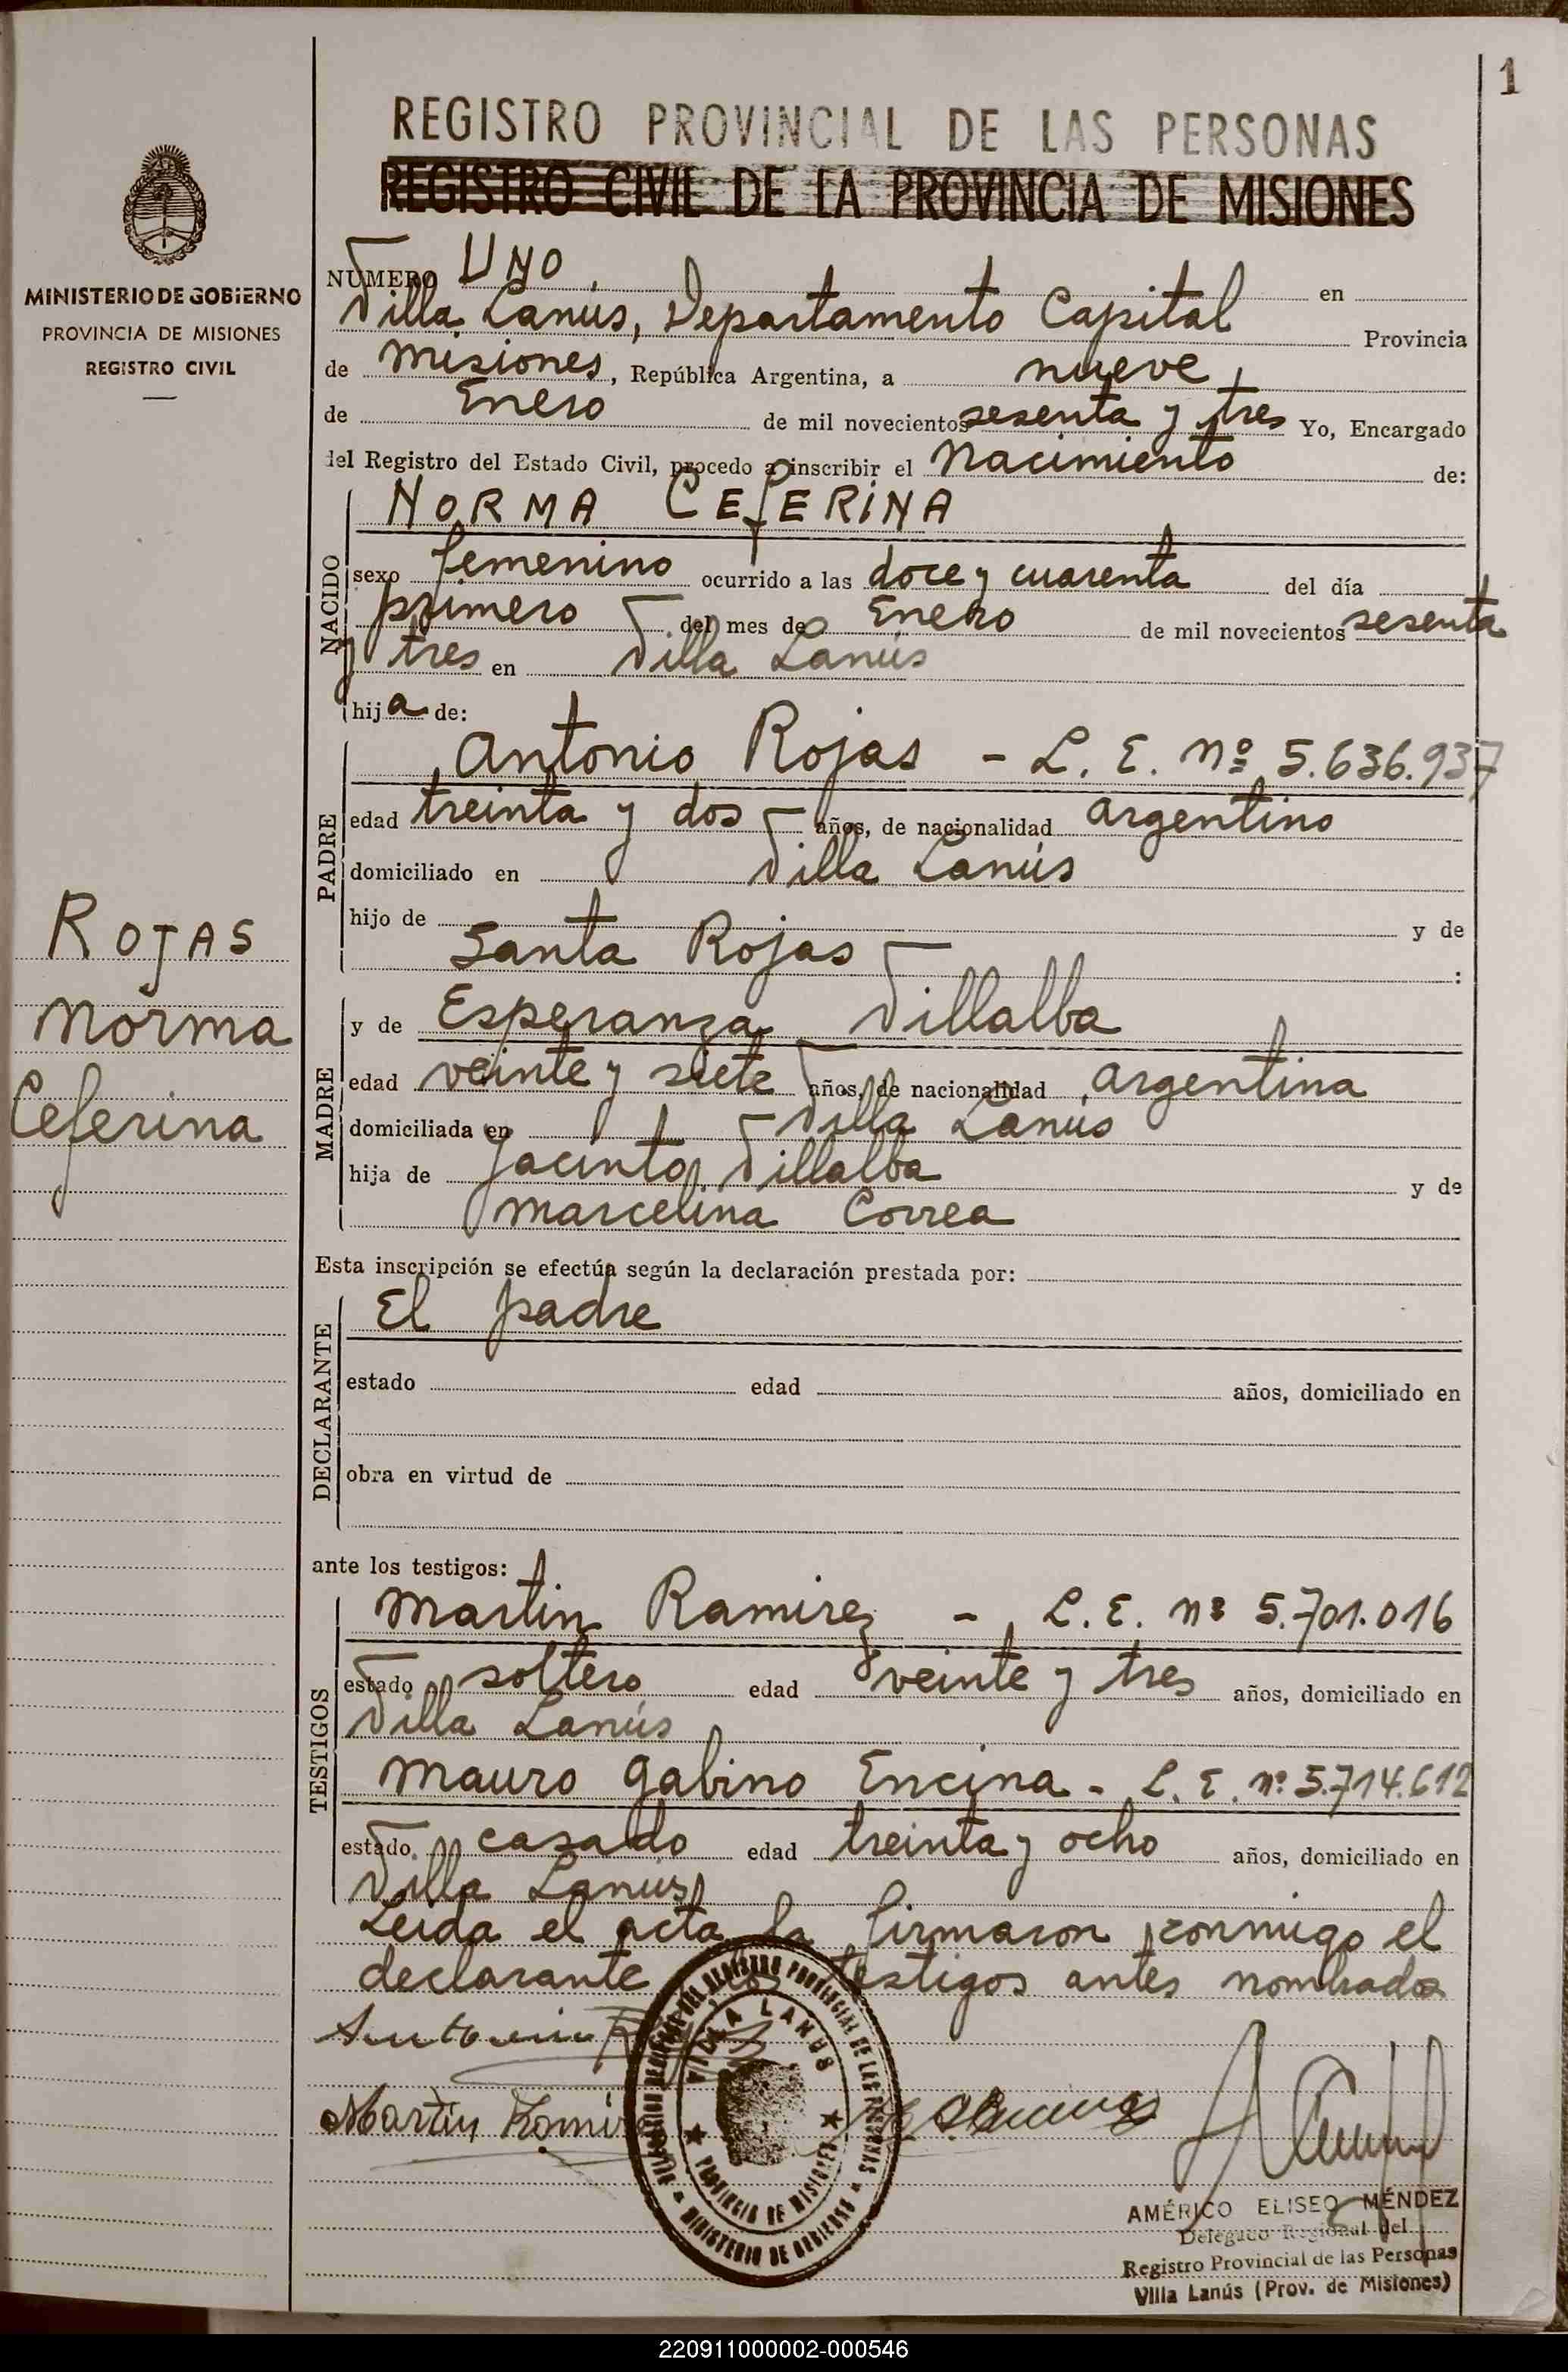 1
REGISTRO PROVINCIAL DE LAS PERSONAS
REGISTRO CIVIL DE LA PROVINCIA DE MISIONES
MINISTERIO DE GOBIERNO
PROVINCIA DE MISIONES
REGISTRO CIVIL
NUMERO UNO en
Villa Lanús, Departamento Capital Provincia
de Misiones, República Argentina, a nueve
de Enero de mil novecientos sesenta y tres Yo, Encargado
del Registro del Estado Civil, procedo a inscribir el Nacimiento de:
NORMA CEFERINA
NACIDO
sexo femenino ocurrido a las doce y cuarenta del día
primero del mes de Enero de mil novecientos sesenta
y tres en Villa Lanús
hija de:
Antonio Rojas - L. E. Nº 5.636.937
PADRE
edad treinta y dos años, de nacionalidad argentino
domiciliado en Villa Lanús
hijo de y de
Santa Rojas :
ROJAS
Norma
Ceferina
y de Esperanza Villalba
MADRE
edad veinte y siete años, de nacionalidad argentina
domiciliada en Villa Lanús
hija de Jacinto Villalba y de
Marcelina Correa
Esta inscripción se efectúa según la declaración prestada por:
El padre
DECLARANTE
estado edad años, domiciliado en
obra en virtud de
ante los testigos:
Martin Ramirez - L. E. nº 5.701.016
TESTIGOS
estado soltero edad veinte y tres años, domiciliado en
Villa Lanús
Mauro Gabino Encina - L. E. nº 5.714.612
estado casado edad treinta y ocho años, domiciliado en
Villa Lanús
Leida el acta la firmaron conmigo el
declarante testigos antes nombrados
Antonio
Martin Rami
VILLA LANUS
PROVINCIA DE MISIONES
MINISTERIO DE GOBIERNO
DEL REGISTRO PROVINCIAL DE LAS PERSONAS
AMÉRICO ELISEO MÉNDEZ
Delegado Regional del
Registro Provincial de las Personas
Villa Lanús (Prov. de Misiones)
220911000002-000546